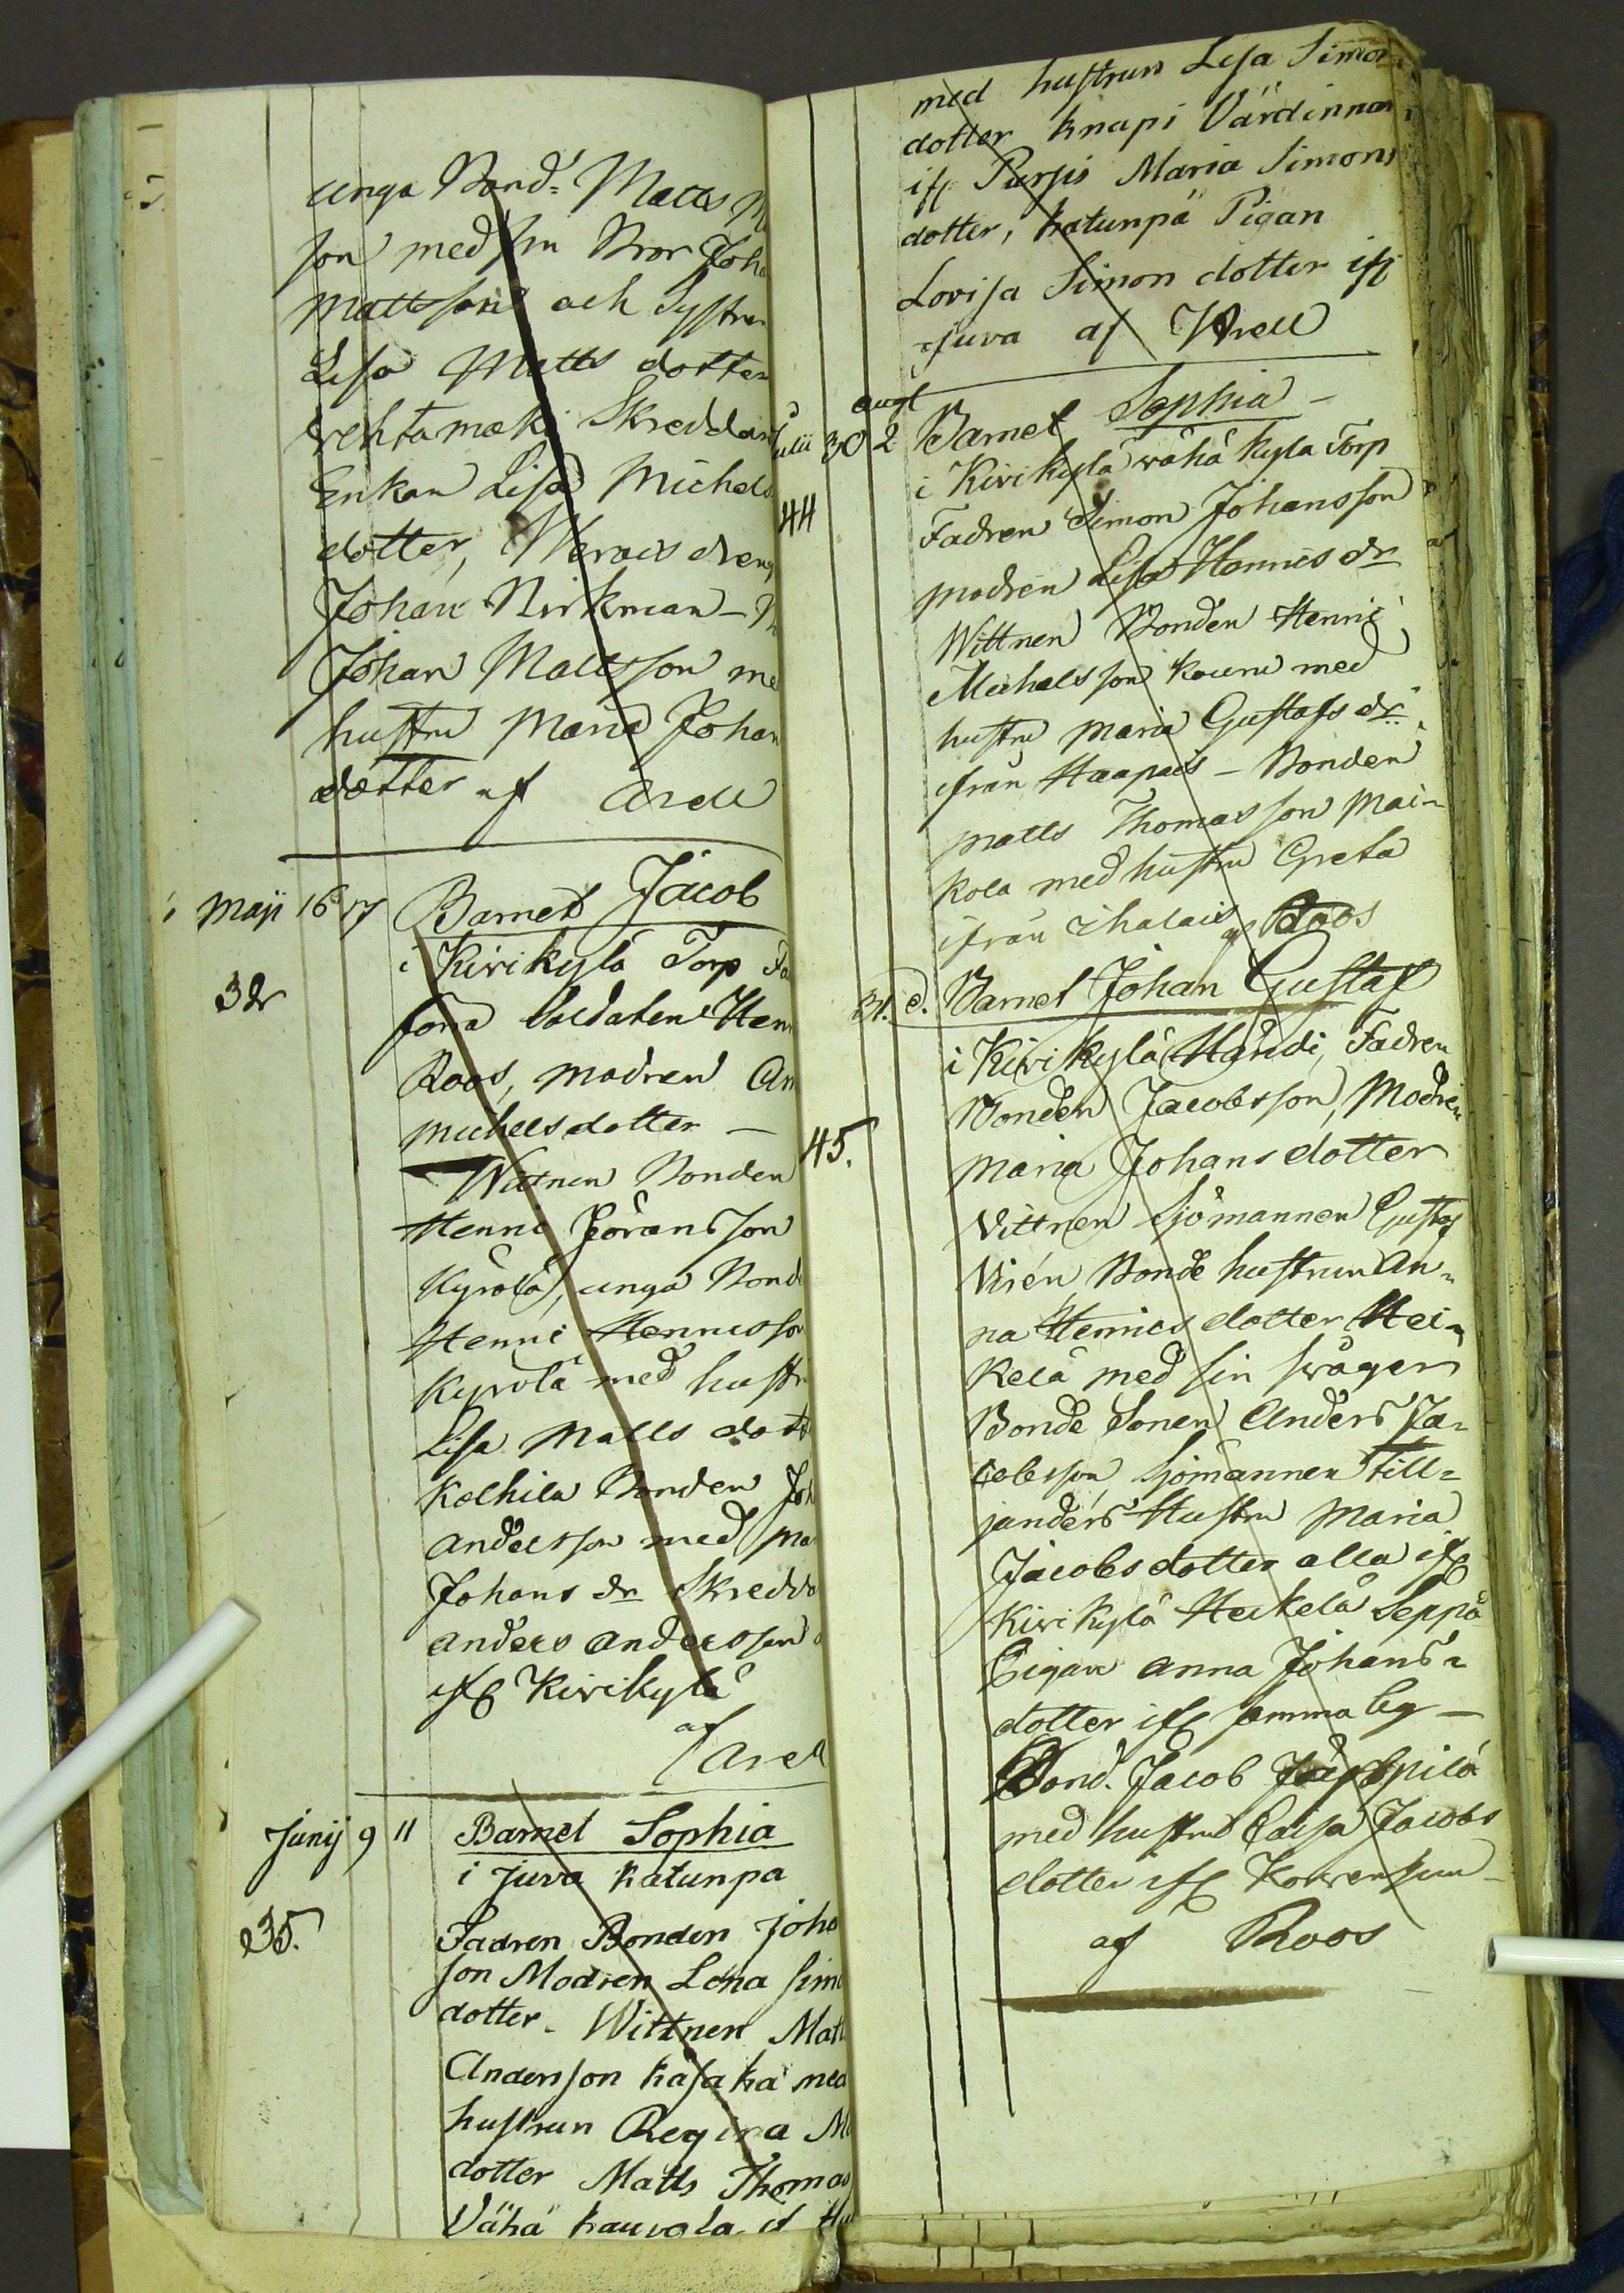 unga Bond: Matts M
son med sin Bror Joha
Mattsson och Systren
Lisa Matts dotter
vehtamæki Skreddar
Enkan Lisa Michels
dotter, Werais dreng
Johan Nirkman - M
Johan Mattsson me
hustru Maria Johan
dotter af Arell
Maji 16 17 Barnet Jacob
i Kirikylä Torp Fa
32
forra Soldaten Hen
Roos, modren An
Michelsdotter -
Wittnen Bonden
Henric Jöransson
Kyrölä, unga Bond
Henric Henricsson
Kyrölä med hustr
Lisa Matts dott
Kolhila Bonden Joh
Andersson med Mar
Johans dr Skredda
Anders Andersson
ifr Kirikylä
af
Arell
Junij 9 11 Barnet Sophia
i Juva katunpä
35.
Fadren Bonden Joha
son Modren Lena Simo
dotter. Wittnen Matt
Andersson käsakä med
hustrun Regina M
dotter Matts Thomas
Vähä kauvola if Hu
med hustrun Lisa Simon
dotter knapi Värdinnan
ifr Pursis Maria Simons
dotter, katunpä Pigan
Lovisa Simon dotter ifr
Juva af Arell
augt
Julii 30 2 Barnet Sophia -
i Kirikylä wähäkyla Torp
44
Fadren Simon Johansson
modren Lisa Henrics dr
Wittnen Bonden Henric
Michelsson Kouru med
hustru Maria Gustafs dr
ifrån Haapais - Bonden
Matts Thomasson Mai-
kola med hustru Greta
ifrån ihalais af Roos
31. d. Barnet Johan Gustaf
i Kirikylä Händi, Fadren
Bonden Jacobsson, Modren
45.
Maria Johansdotter
Vittnen Sjömannen Gustaf
Virén, Bonde hustrun An-
na Henricsdotter Hei-
kelä med sin swåger
Bonde Sonen Anders Ja-
cobsson, Sjömannen Till-
janders Hustru Maria
Jacobsdotter alla ifr
Kirikylä Heikelä Seppä
Pigan Anna Johans-
dotter ifr samma by -
Bond. Jacob Jäppilä
med hustru Caisa Jacobs
dotter ifr Korvensuu
af Roos